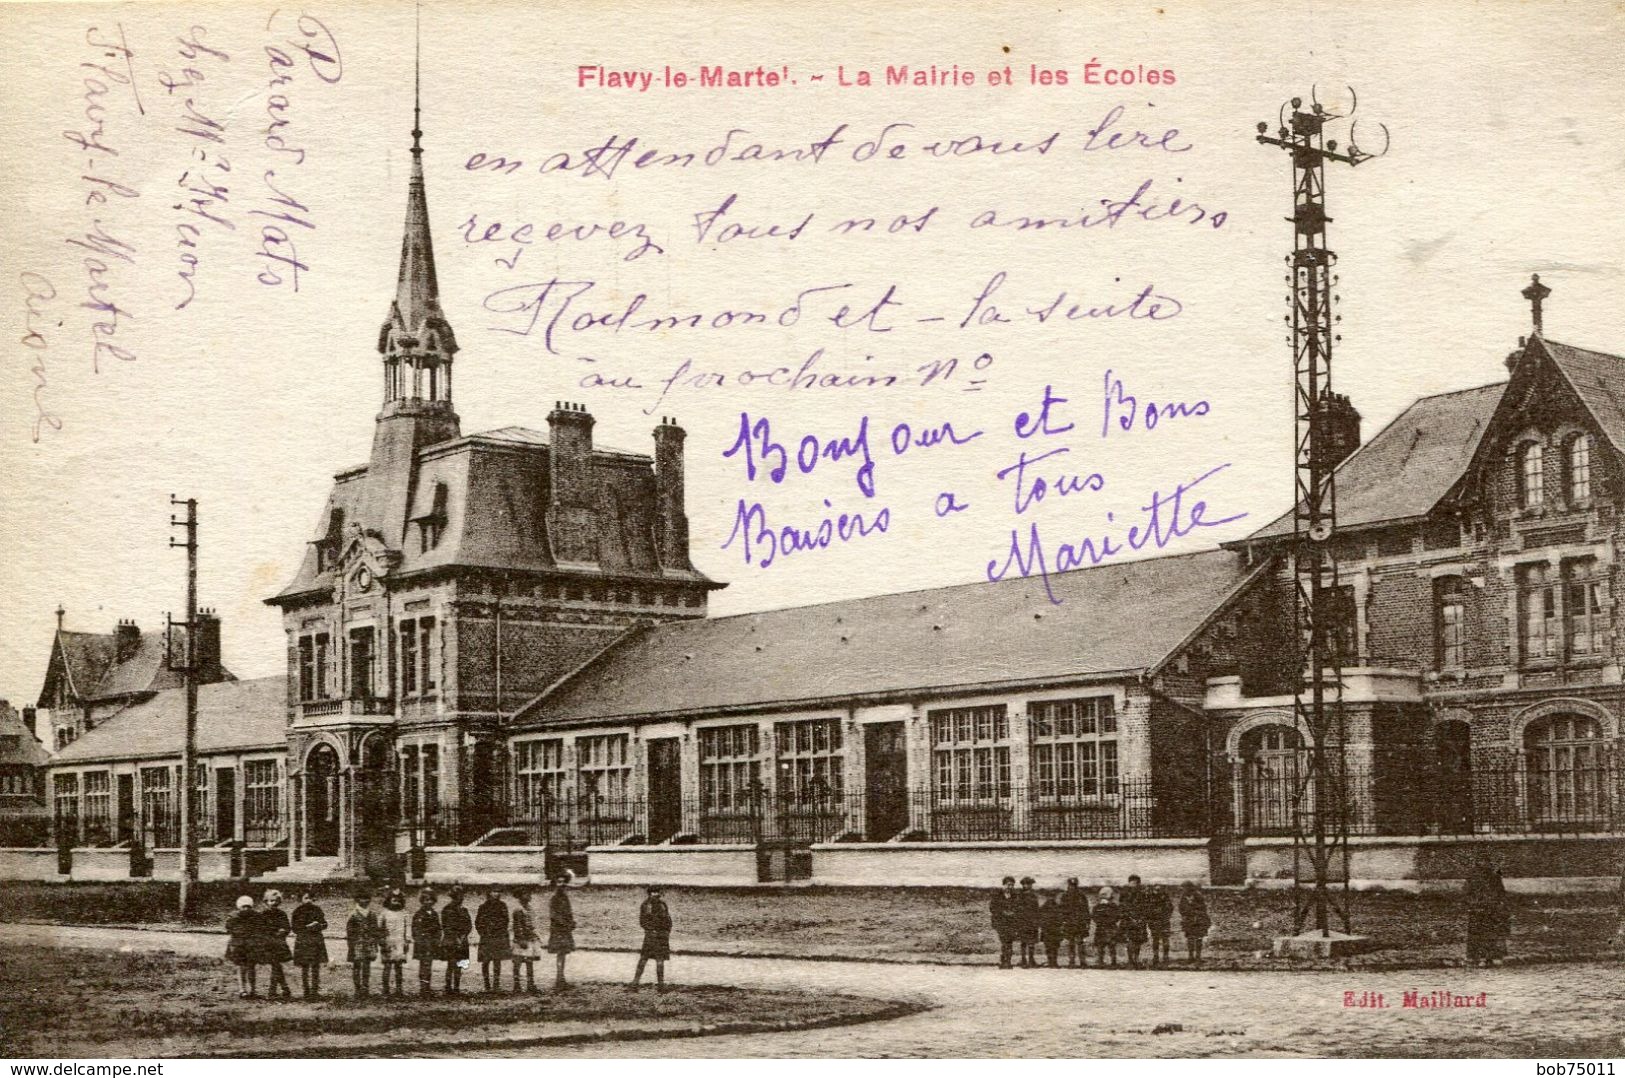 Flavy-le-Martel. - La Mairie et les Écoles
en attendant de vous lire
recevez tous nos amitiers
et - la suite
au prochain Nº
Bonjour et Bons
Baisers a tous
Mariette
Parard Mats
chez Mr
Flavy-le Martel
aisne
Edit. Maillard
www.delcampe.net
bob75011